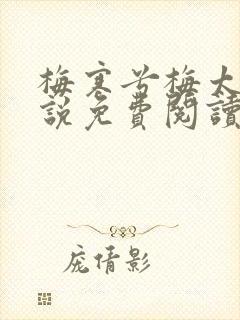 梅寒兮梅大
說免費閱讀
庞倩影